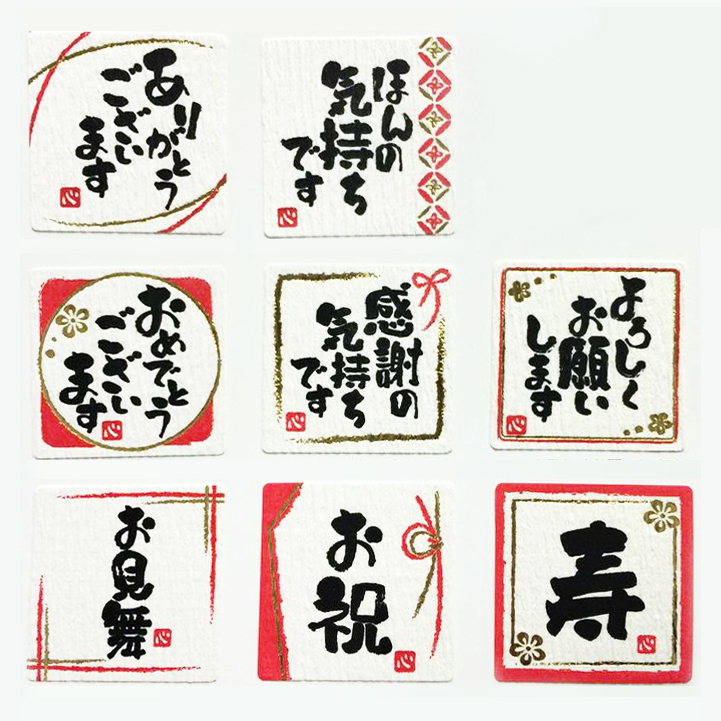 ありがとう
ございい
ます
心
ほんの
気持ち
です
心
おめでとう
ございい
ます
心
感謝の
気持ち
です
心
よろしく
お願い
します
心
お見舞
心
お祝
心
寿
心